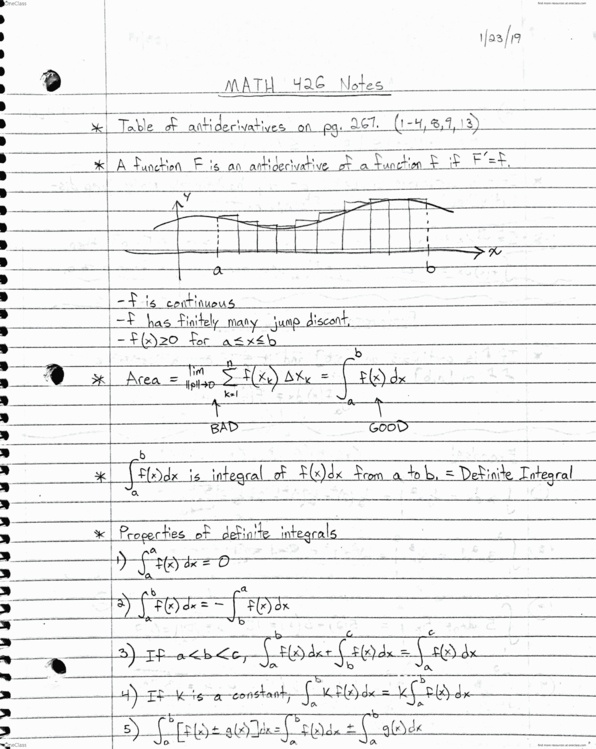 OneClass
find more resources at oneclass.com
1/23/19
MATH 426 Notes
* Table of antiderivatives on pg. 267. (1-4, 8, 9, 13)
* A function F is an antiderivative of a function f if F'=f.
y
x
a b
-f is continuous
-f has finitely many jump discont.
-f(x)≥0 for a≤x≤b
* Area = lim ||p||→0 ∑ k=1 n f(x_k) Δx_k = ∫_a^b f(x) dx
↑ ↑
BAD GOOD
* ∫_a^b f(x)dx is integral of f(x)dx from a to b. = Definite Integral
* Properties of definite integrals
1) ∫_a^a f(x) dx = 0
2) ∫_a^b f(x) dx = - ∫_b^a f(x) dx
3) If a<b<c, ∫_a^b f(x) dx + ∫_b^c f(x) dx = ∫_a^c f(x) dx
4) If K is a constant, ∫_a^b K f(x) dx = K ∫_a^b f(x) dx
5) ∫_a^b [f(x) ± g(x)] dx = ∫_a^b f(x) dx ± ∫_a^b g(x) dx
find more resources at oneclass.com